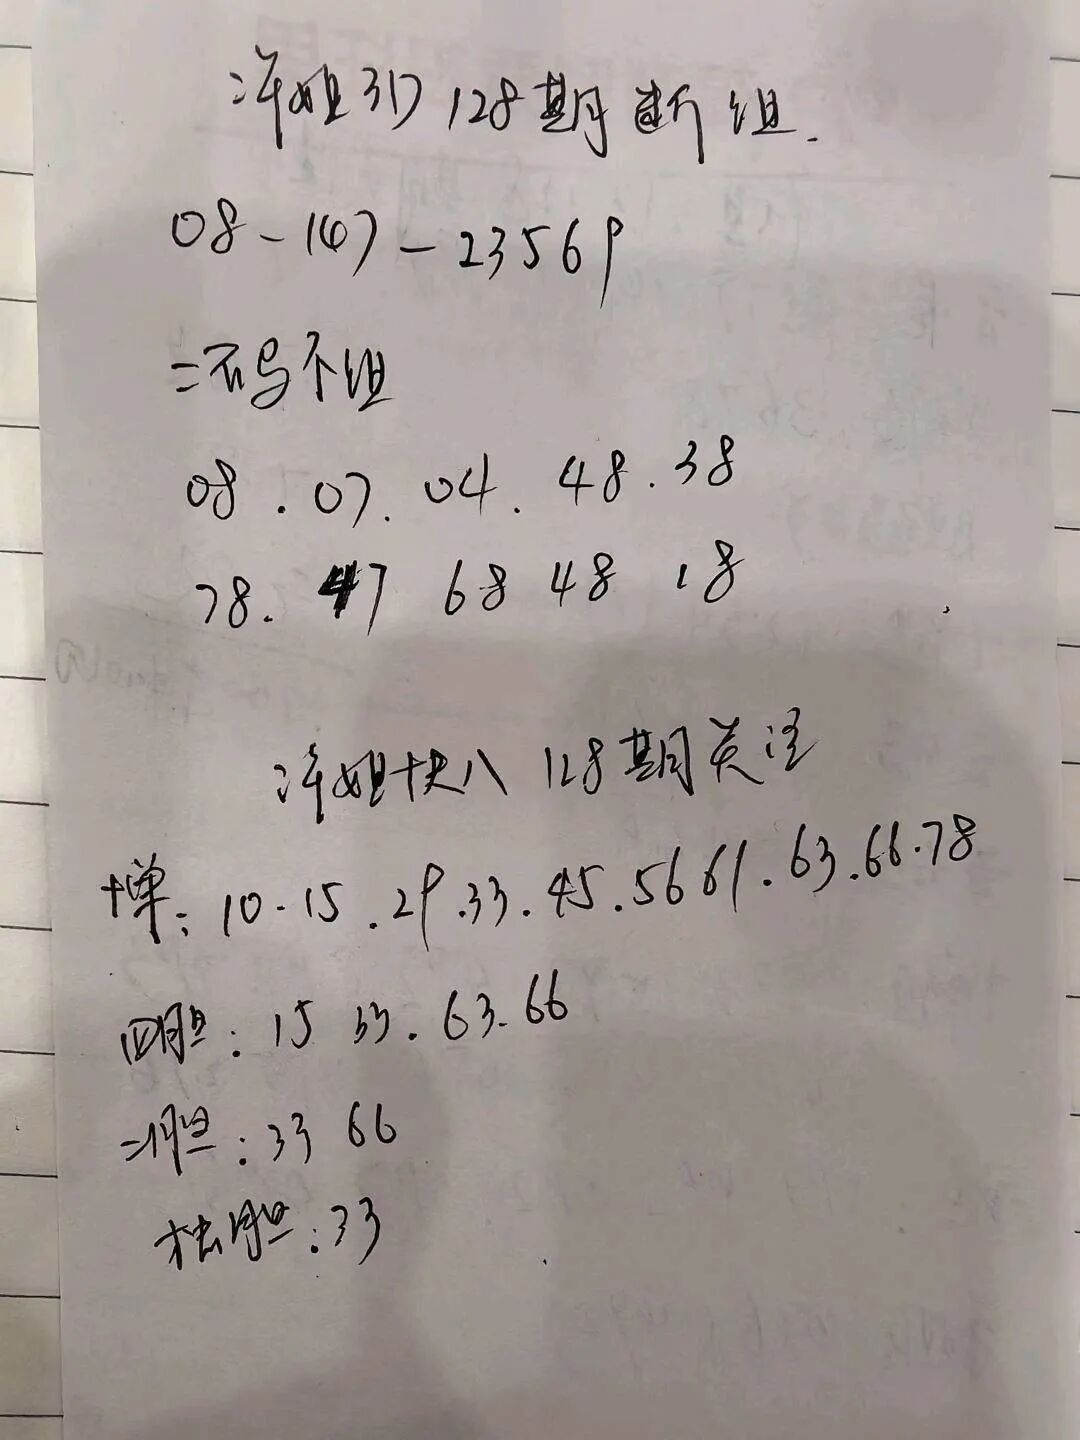 洋姐3D128期断组.
08-147-23569
二码不组
08.07.04.48.38
78.47 68 48 18
洋姐快八128期关注
十单:10.15.29.33.45.56 61.63.66.78
四胆:15 33.63.66
二胆:33 66
独胆:33